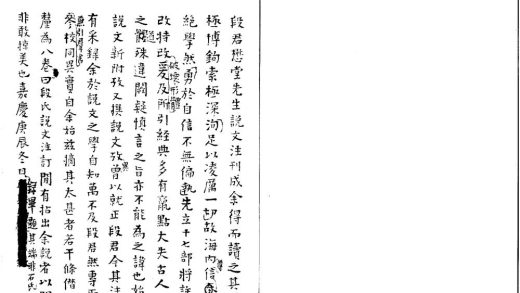 段君懋堂先生說文注刊成余得而讀之其
極博鉤索極深洵足以凌厲一切故海內
絕學然勇於自信不無偏執先立十七部將許
破壞形體
改特改更及所引經典多有竄點大失古人
之殊違闕疑慎言之旨亦不能為之諱也始
說文新附攷又撰說文攷異曾以就正段君今其注
有采錄余於說文之學自知萬不及段君無專
參校同異實自余始茲摘其太甚者若干條
釐為八卷曰段氏說文注訂間有拈出余說者以
非敢掠美也嘉慶庚辰冬日題其端非石氏